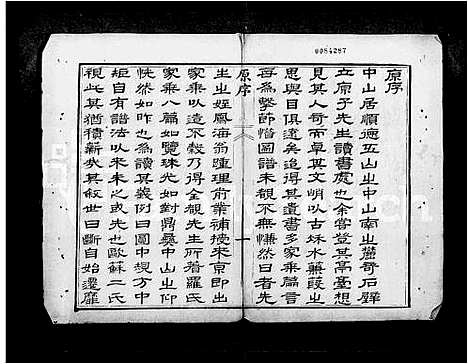 0084287
原序
中山居順德五山之中山南之麓奇石壁
立原子先生讀書處也余嘗登其亭臺想
見其人奇而卓其文峭以古秌水蒹葭之
思與目俱遠矣追得其遺書多家乗扁言
每為擊節惜圖譜未覩不無慊然曰者先
原序 一
生之姪鳳海翁踵理前業補授來京即出
家乗以遺不穀乃得全觀先生所著羅氏
家乗八扁如覽珠光如對鼎彜中山之仰
恍然如昨也為讀其義例曰圖中規方中
矩自有譜法以來未之或先也歐蘇二氏
視此其猶積薪矣其敘世曰斷自始遷靡